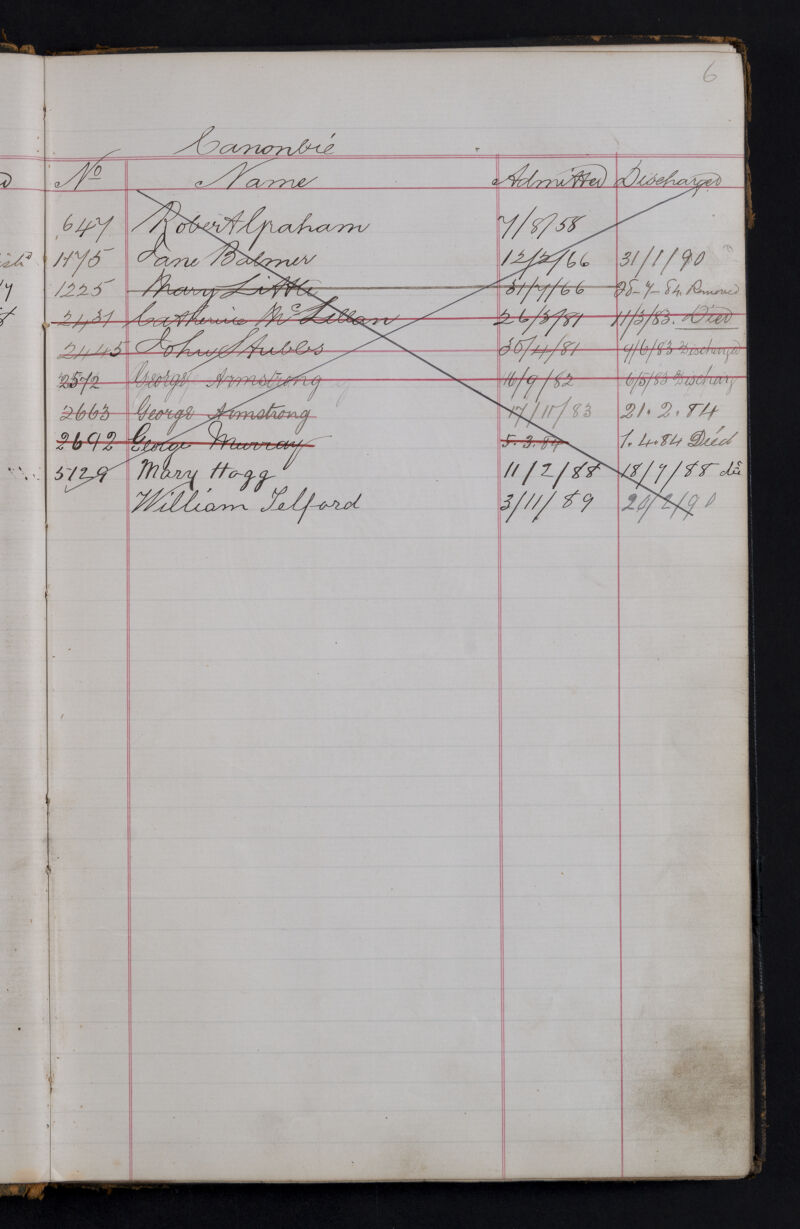 6
Canonbie
No Name Admitted Discharged
647 Robert Graham 7/8/58
1175 Jane Balmer 12/2/66 31/1/90
1225 Mary Little 31/7/66 28-7-84 Removed
2431 Catherine McLellan 26/3/81 11/3/83. Died
2445 John Stubbs 30/4/81 9/6/83 Discharged
2572 George Armstrong 16/9/82 6/5/83 Discharg
2663 George Armstrong 17/11/83 21.2.84
2692 George Murray 5.3.84 1.4.84 Died
3129 Mary Hogg 11/2/88 18/7/88
William Telford 3/11/89 20/2/90